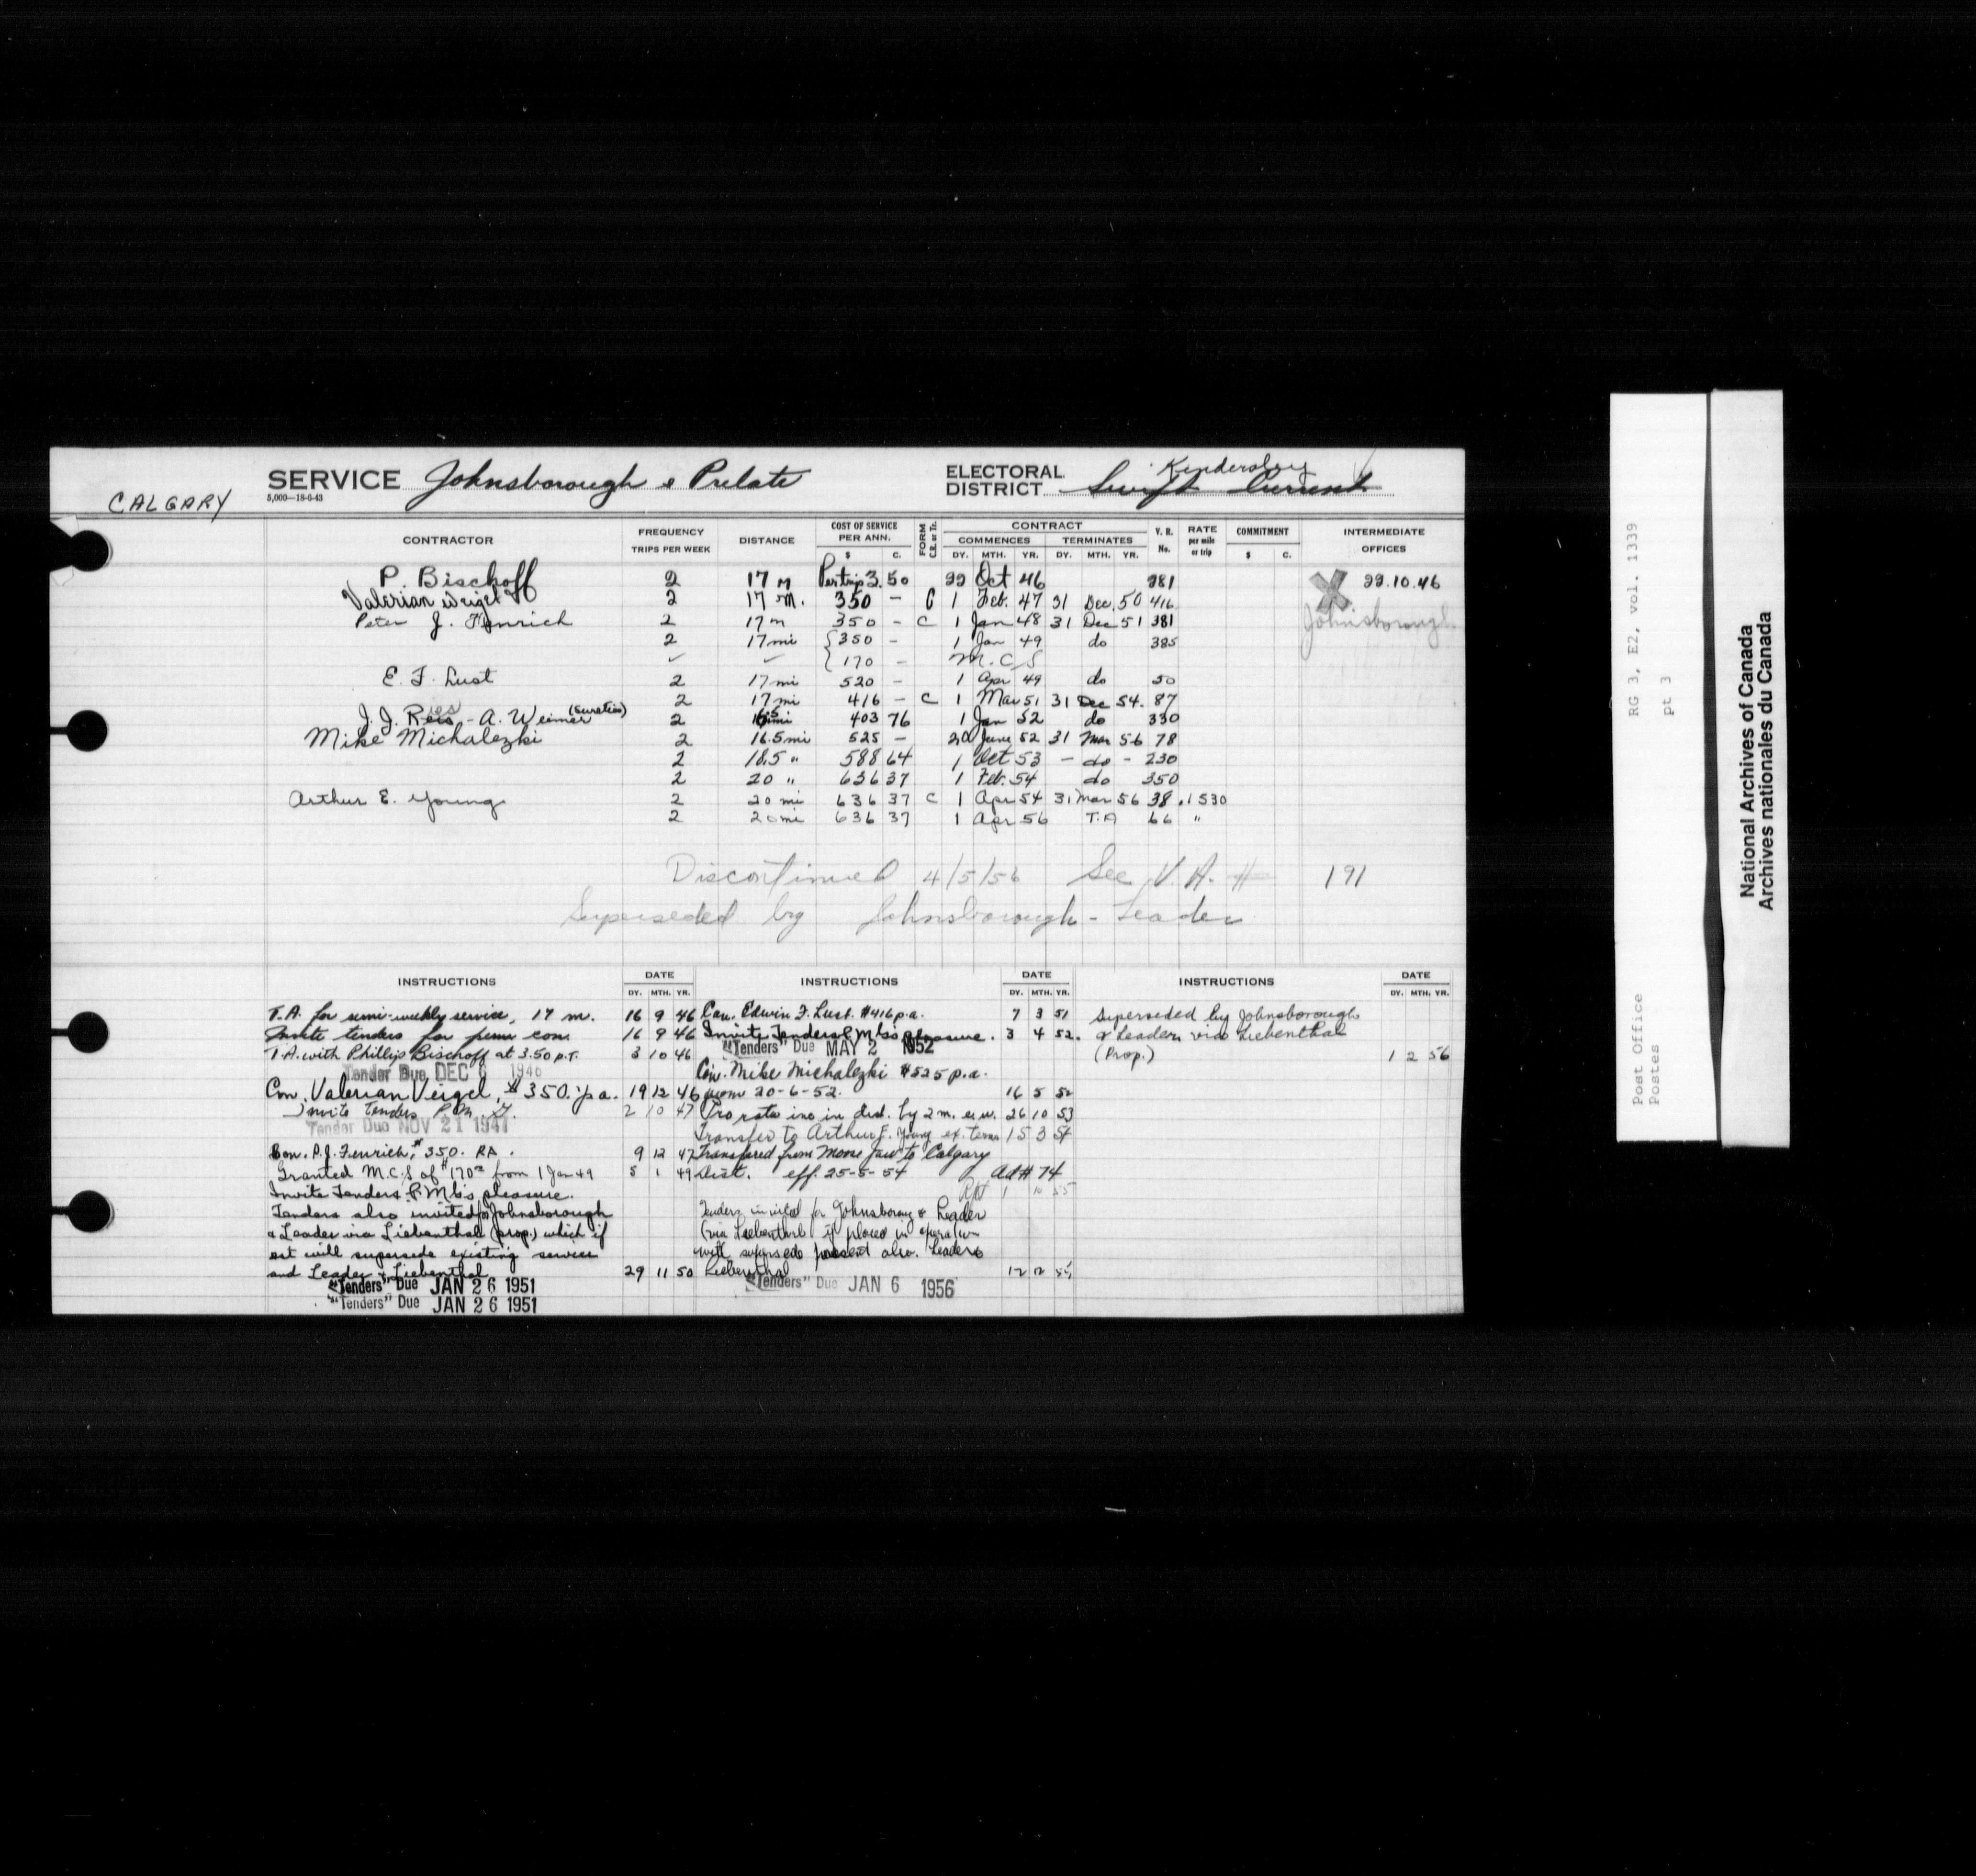 CALGARY
SERVICE Johnsborough & Prelate
5,000—18-6-43
ELECTORAL DISTRICT Swift Current Kindersley
CONTRACTOR FREQUENCY TRIPS PER WEEK DISTANCE COST OF SERVICE PER ANN. $ C. FORM C.R. or Tr. CONTRACT COMMENCES DY. MTH. YR. TERMINATES DY. MTH. YR. V. R. No. RATE per mile or trip COMMITMENT $ C. INTERMEDIATE OFFICES
P. Bischoff 2 17 M Per trip 3.50 22 Oct 46 281 X 22.10.46
Valerian Weigel 2 17 M. 350 - C 1 Feb. 47 31 Dec. 50 416
Peter J. Fenrich 2 17 m 350 - C 1 Jan 48 31 Dec 51 381 Johnsborough
2 17 mi 350 - 1 Jan 49 do 385
✓ ✓ 170 - M.C.S
E. F. Lust 2 17 mi 520 - 1 Apr 49 do 50
2 17 mi 416 - C 1 Mar 51 31 Dec 54. 87
J. J. Reis - A. Weimer (Sureties) 2 16.5 mi 403 76 1 Jan 52 do 330
Mike Michalezki 2 16.5 mi 525 - 20 June 52 31 Mar 56 78
2 18.5 " 588 64 1 Oct 53 - do - 230
2 20 " 636 37 1 Feb. 54 do 350
Arthur E. Young 2 20 mi 636 37 C 1 Apr 54 31 Mar 56 38 .1530
2 20 mi 636 37 1 Apr 56 T.A 66 "
Discontinued 4/5/56 See V. A. # 191
Superseded by Johnsborough - Leader
INSTRUCTIONS DATE DY. MTH. YR.
T.A. for semi-weekly service, 17 m. 16 9 46
Invite tenders for perm con. 16 9 46
T.A. with Phillip Bischoff at 3.50 p.T. 3 10 46
Tender Due DEC 6 1946
Con. Valerian Veigel, $350. p a. 19 12 46
Invite Tenders P.M. G. 2 10 47
Tender Due NOV 21 1947
Con. P.J. Fenrich, $350. PA. 9 12 47
Granted M.C.S of $170 from 1 Jan 49 5 1 49
Invite Tenders P.Mb's pleasure.
Tenders also invited for Johnsborough
& Leader via Liebenthal (prop.) which if
est will supersede existing service
and Leader & Liebenthal 29 11 50
"Tenders" Due JAN 26 1951
"Tenders" Due JAN 26 1951
INSTRUCTIONS DATE DY. MTH. YR.
Con. Edwin F. Lust. $416 p.a. 7 3 51
Invite Tenders P Mb's pleasure. 3 4 52.
"Tenders" Due MAY 2 1952
Con. Mike Michalezki $525 p.a.
from 20-6-52. 16 5 52
Pro rata inc in dist. by 2 m. e.w. 26 10 53
Transfer to Arthur E. Young ex. terms 15 3 54
Transfered from Moose Jaw to Calgary
Dist. eff. 25-5-54 Ad # 74
Tenders invited for Johnsborough & Leader
(via Liebenthal) if placed in operation
will supersede present also. Leader &
Liebenthal
"Tenders" Due JAN 6 1956
INSTRUCTIONS DATE DY. MTH. YR.
Superseded by Johnsborough
& Leader via Liebenthal
(Prop.) 1 2 56
RG 3, E2, vol. 1339
pt 3
Post Office
Postes
National Archives of Canada
Archives nationales du Canada